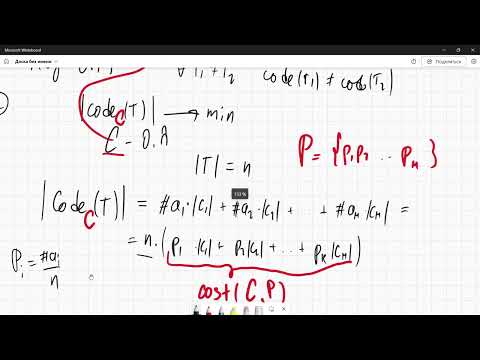 Microsoft Whiteboard
Доска без имени
Поделиться
code(T₁) ≠ code(T₂)
|code_C(T)| → min
C - О.Д
|T| = n
P = {p₁p₂ .. pₘ}
|Code_C(T)| = #a₁·|c₁| + #a₂·|c₂| + .. + #aₘ|cₘ| =
= n·(p₁·|c₁| + p₂|c₂| + .. + pₖ|cₘ|)
pᵢ = #aᵢ/n
cost(C.P)